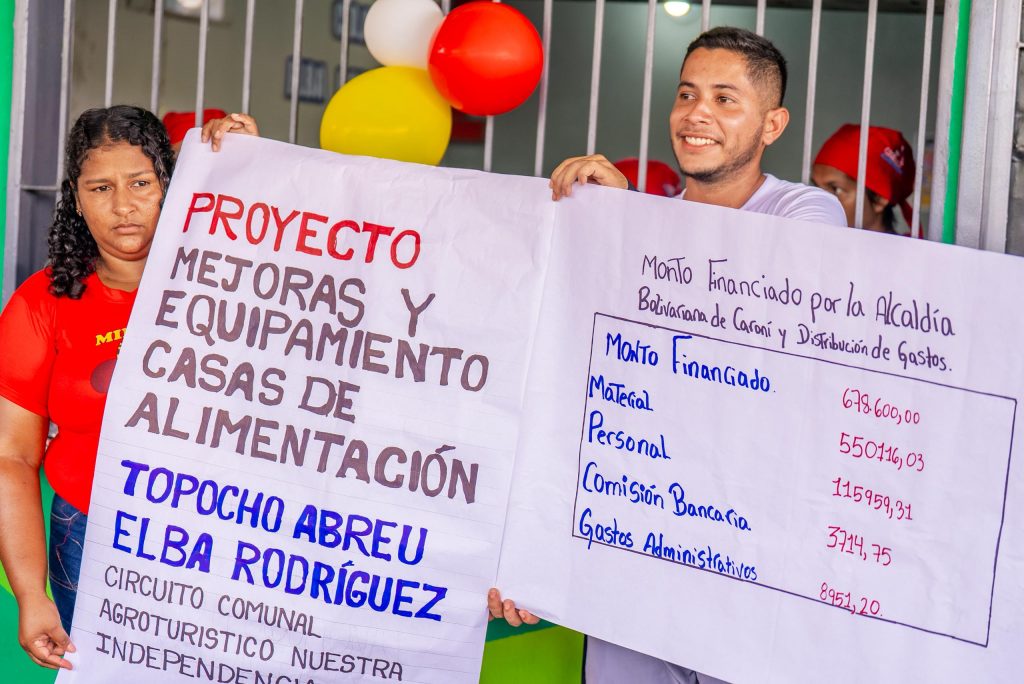 PROYECTO
MEJORAS Y
EQUIPAMIENTO
CASAS DE
ALIMENTACIÓN
TOPOCHO ABREU
ELBA RODRÍGUEZ
CIRCUITO COMUNAL
AGROTURISTICO NUESTRA
INDEPENDENCIA
Monto Financiado por la Alcaldía
Bolivariana de Caroní y Distribución de Gastos.
Monto Financiado. 678.600,00
Material 550116,03
Personal 115959,31
Comisión Bancaria 3714,75
Gastos Administrativos 8951,20.